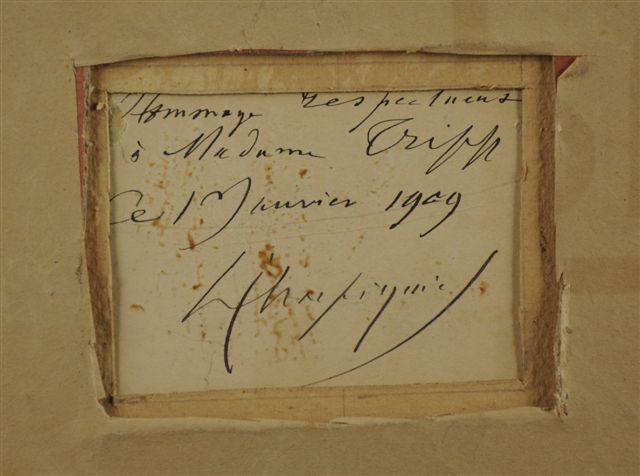 Hommage respectueux
à Madame Tripp
Ce 1 Janvier 1909
hharpignies